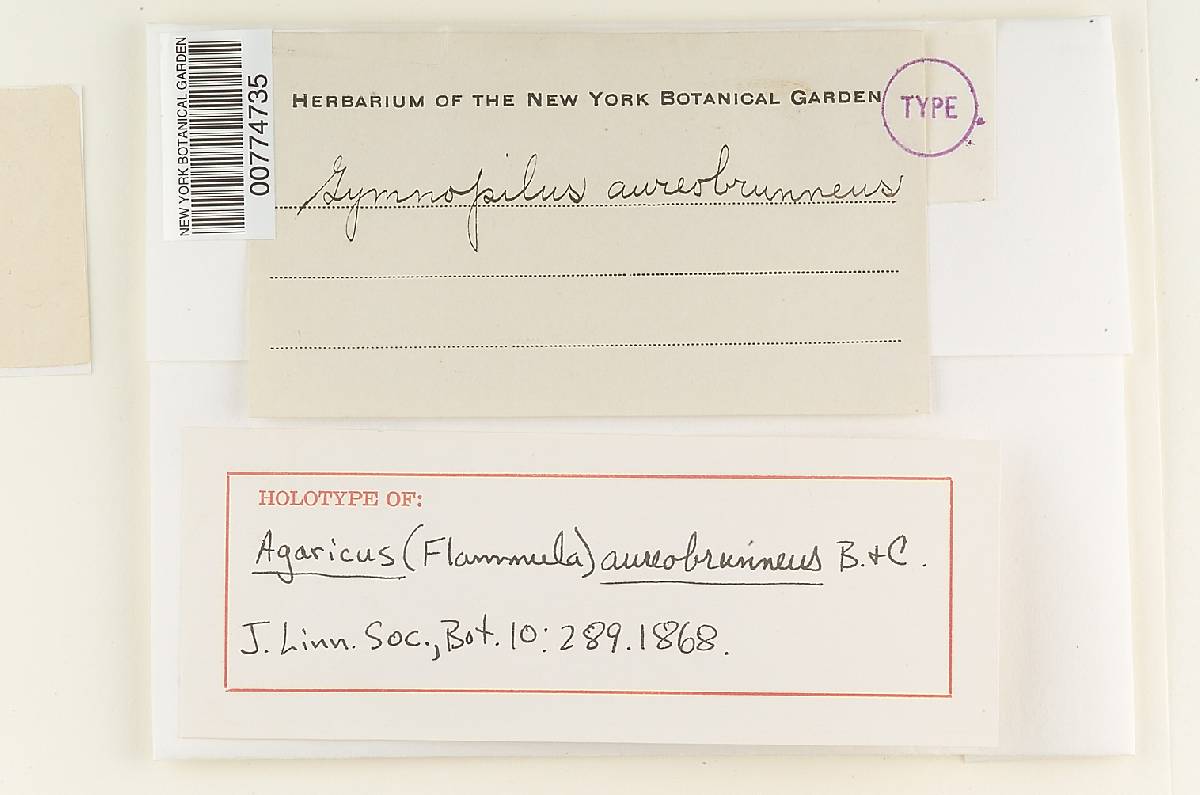 NEW YORK BOTANICAL GARDEN
00774735
HERBARIUM OF THE NEW YORK BOTANICAL GARDEN
TYPE
Gymnopilus aureobrunneus
HOLOTYPE OF:
Agaricus (Flammula) aureobrunneus B. + C.
J. Linn. Soc., Bot. 10: 289. 1868.